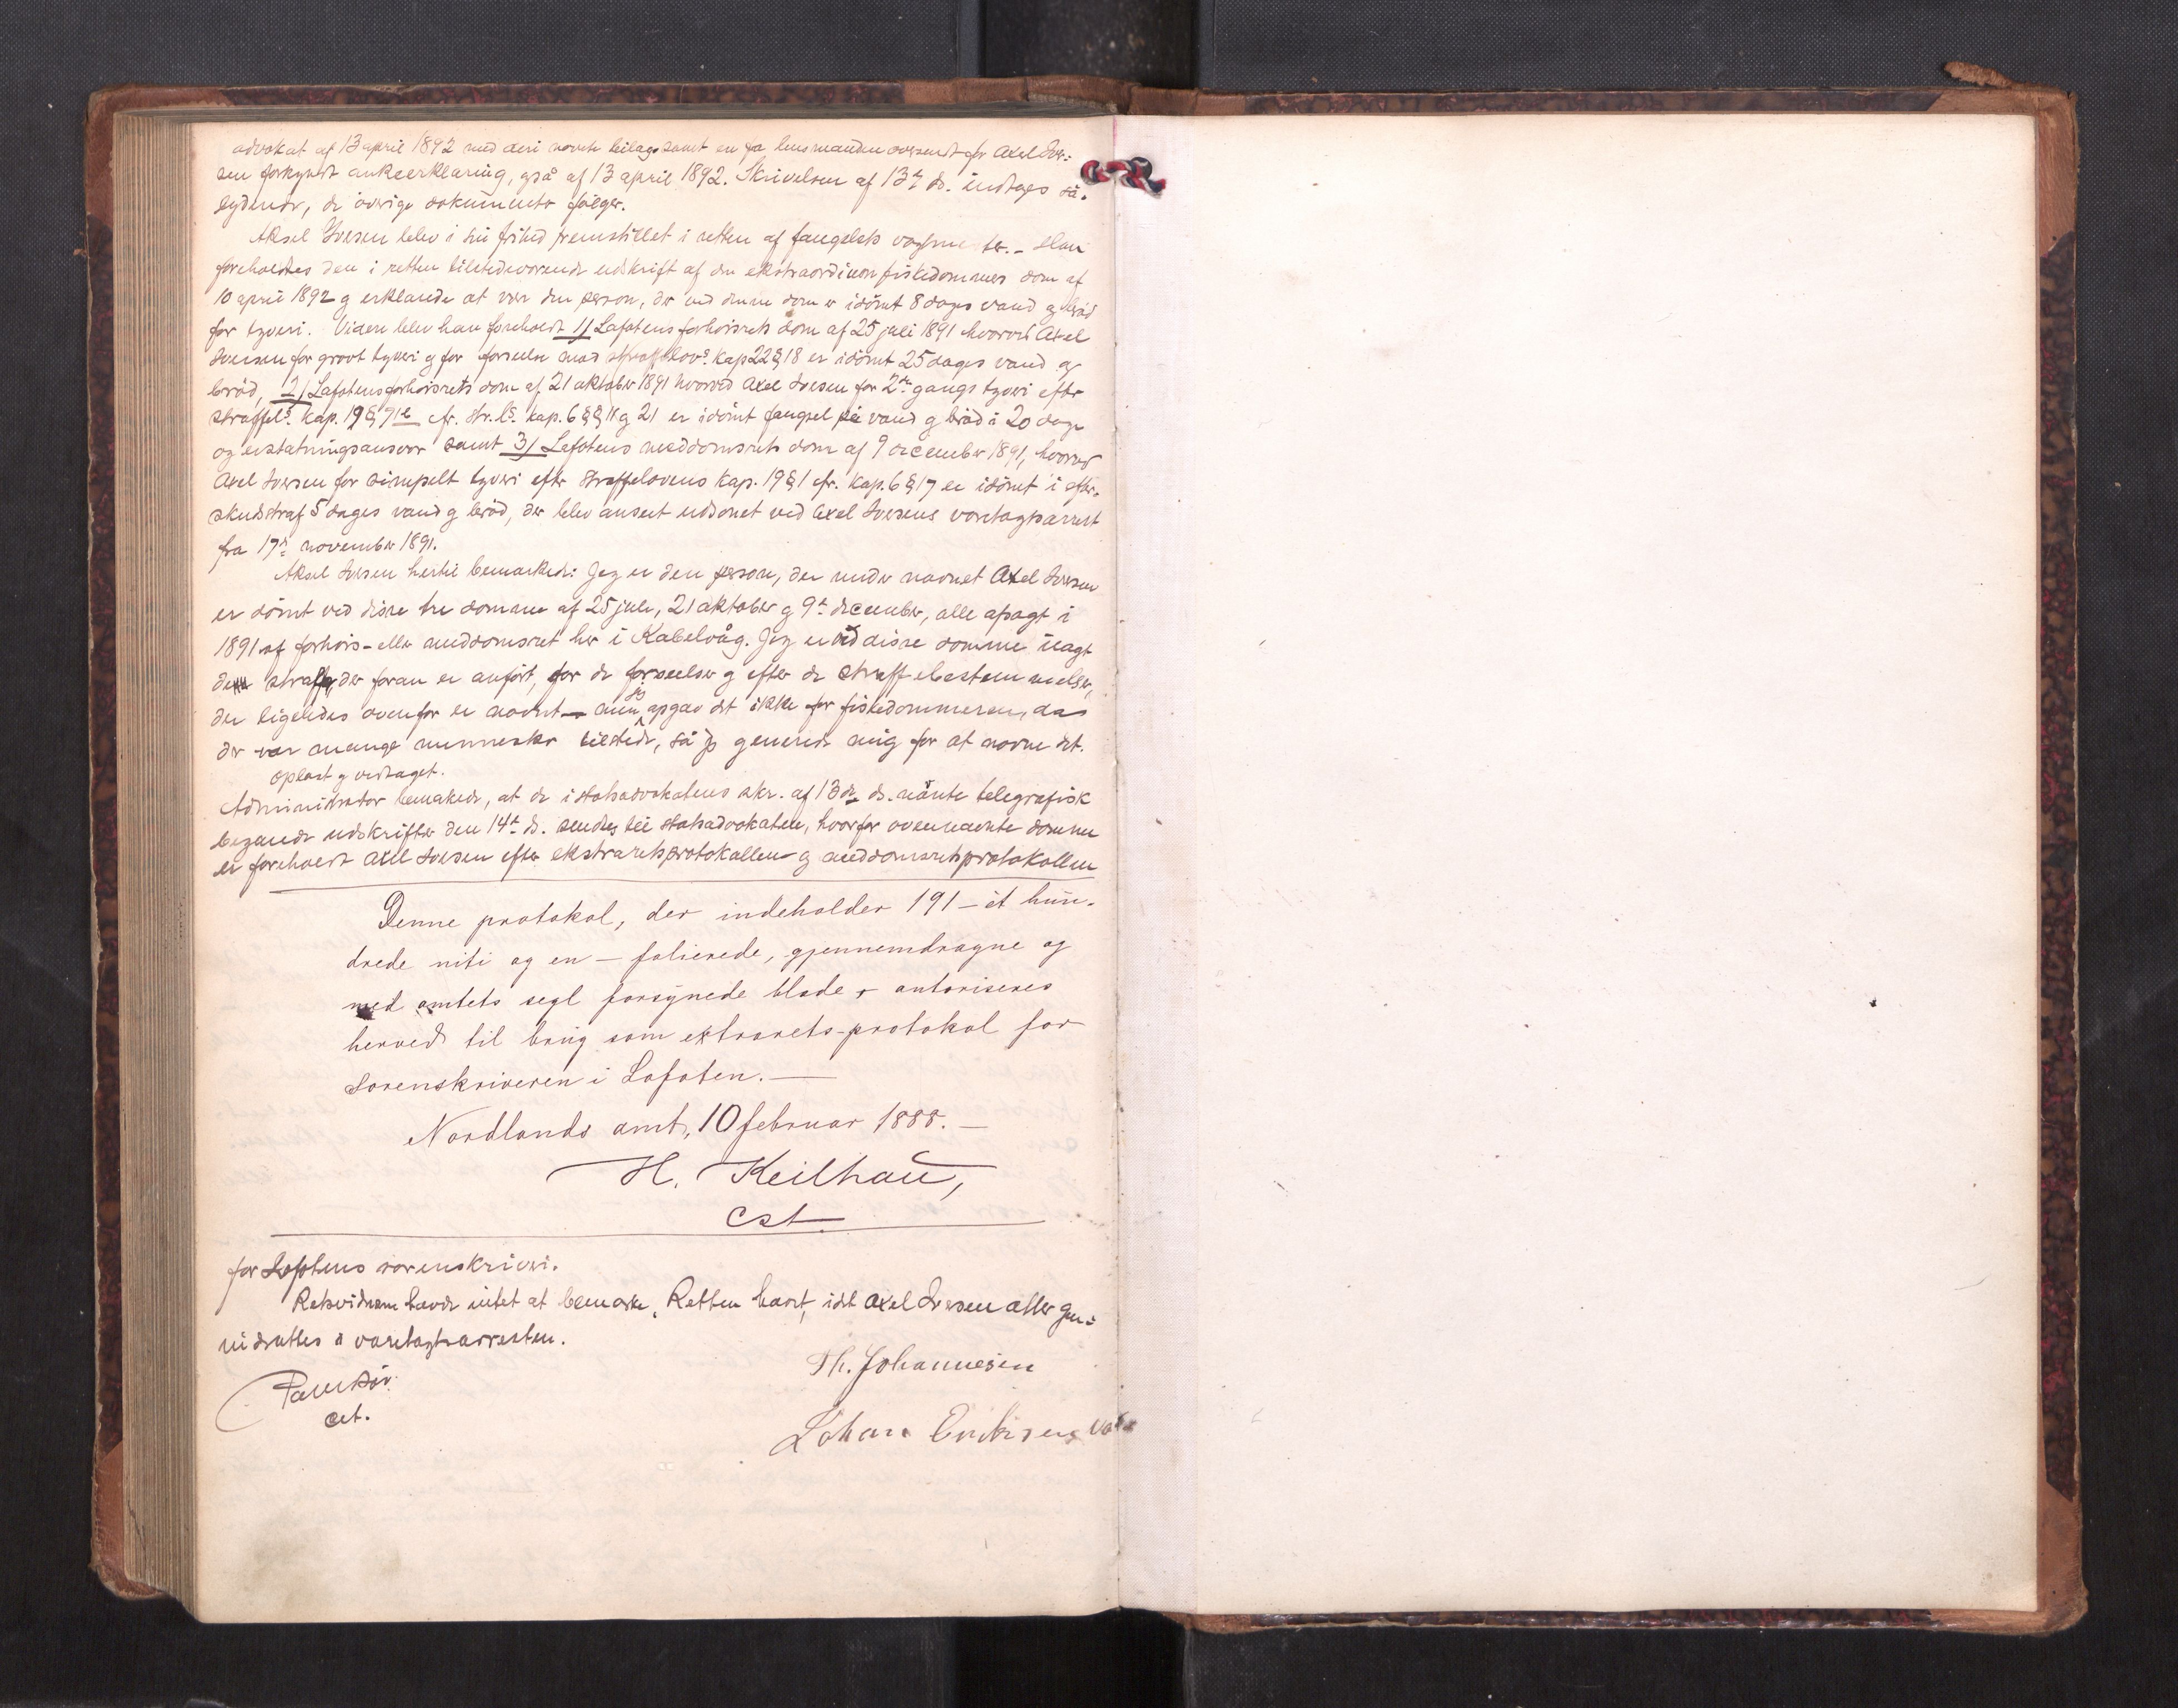 advokat af 13 april 1892 med deri nævnte bilag samt en fra lensmanden oversendt for Axel Iver-
sen forkyndt ankeerklæring, også af 13 april 1892. Skrivelsen af 13de ds. indtages så-
lydende, de øvrige dokumenter følger.
Aksel Iversen blev i sin frihed fremstillet i retten af fængslets vagtmester. – Han
foreholdtes den i retten tilstedeværende udskrift af den ekstraordinære fiskedommers dom af
10 april 1892 g erklærede at være den person, der ved denne dom er idømt 8 dages vand g brød
for tyveri. Videre blev han foreholdt 1/ Lofotens forhørsrets dom af 25 juli 1891 hvorved Axel
Iversen for grovt tyveri g for forseelse mod straffelovs kap 22 § 18 er idømt 25 dages vand og
brød, 2/ Lofotens forhørsrets dom af 21 oktober 1891 hvorved Axel Iversen for 2den gangs tyveri efter
straffels kap. 19 § cfr. str.ls kap. 6 §§ 11 g 21 er idømt fængsel på vand g brød i 20 dage
og erstatningsansvar samt 3/ Lofotens meddomsrets dom af 9 december 1891, hvorved
Axel Iversen for simpelt tyveri efter straffelovens kap. 19 § 1 cfr. kap. 6 § 17 er idømt i efter-
skudsstraf 5 dages vand g brød, der blev anseet udsonet ved Axel Iversens varetægtsarrest
fra 17de november 1891.
Aksel Iversen hertil bemærkede: Jeg er den person, der under navnet Axel Iversen
er dømt ved disse tre domme af 25 juli, 21 oktober g 9de december, alle afsagt i
1891 af forhørs- eller meddomsret her i Kabelvåg. Jeg er ved disse domme ilagt
den straf, der foran er anført, for de forseelser g efter de straffebestemmelser,
der ligeledes ovenfor er nævnt – men jeg opgav det ikke for fiskedommeren, da
der var mange mennesker tilstede, så jeg generede mig for at nævne det.
Oplæst g vedtaget.
Administrator bemærkede, at de i statsadvokatens skr. af 13de ds. nævnte telegrafisk
begjærede udskrifter den 14de ds. sendtes til statsadvokaten, hvorfor ovennævnte domme
er foreholdt Axel Iversen efter ekstraretsprotokollen g meddomsretsprotokollen
Denne protokol, der indeholder 191 – ét hun-
drede niti og en – folierede, gjennemdragne og
med amtets segl forsynede blade, autoriseres
herved til brug som extrarets-protokol for
Sorenskriveren i Lofoten. —
Nordlands amt, 10 februar 1888. —
H. Keilhau,
cst.
for Lofotens sorenskriveri.
Retsvidnerne havde intet at bemærke. Retten hævet, idet Axel Iversen atter gen-
indsattes i varetægtsarresten.
cst.
Th. Johannesen
Johan Eriksen